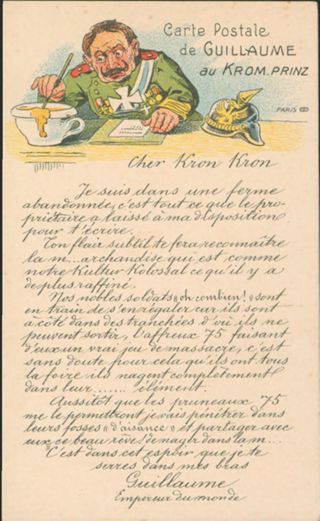 Carte Postale
de GUILLAUME
au KROM.PRINZ
PARIS
Cher Kron Kron
Je suis dans une ferme
abandonnée, c'est tout ce que le pro-
priétaire a laissé à ma disposition
pour t'écrire.
Ton flair subtil te fera reconnaître
la m...archandise qui est comme
notre Kultur Kolossal ce qu'il y a
de plus raffiné.
Nos nobles soldats "ch combun!" sont
en train de s'en régaler car ils sont
à côté dans des tranchées d'où ils ne
peuvent sortir, l'affreux 75 faisant
d'eux un vrai jeu de massacre, c'est
sans doute pour cela qu'ils ont tous
la foire ils nagent complètement
dans leur....... élément.
Aussitôt que les pruneaux 75
me le permettront je vais pénétrer dans
leurs fosses "d'aisance" et partager avec
eux ce beau rêve! de nager dans la m...
C'est dans cet espoir que je te
serres dans mes bras
Guillaume
Empereur du monde